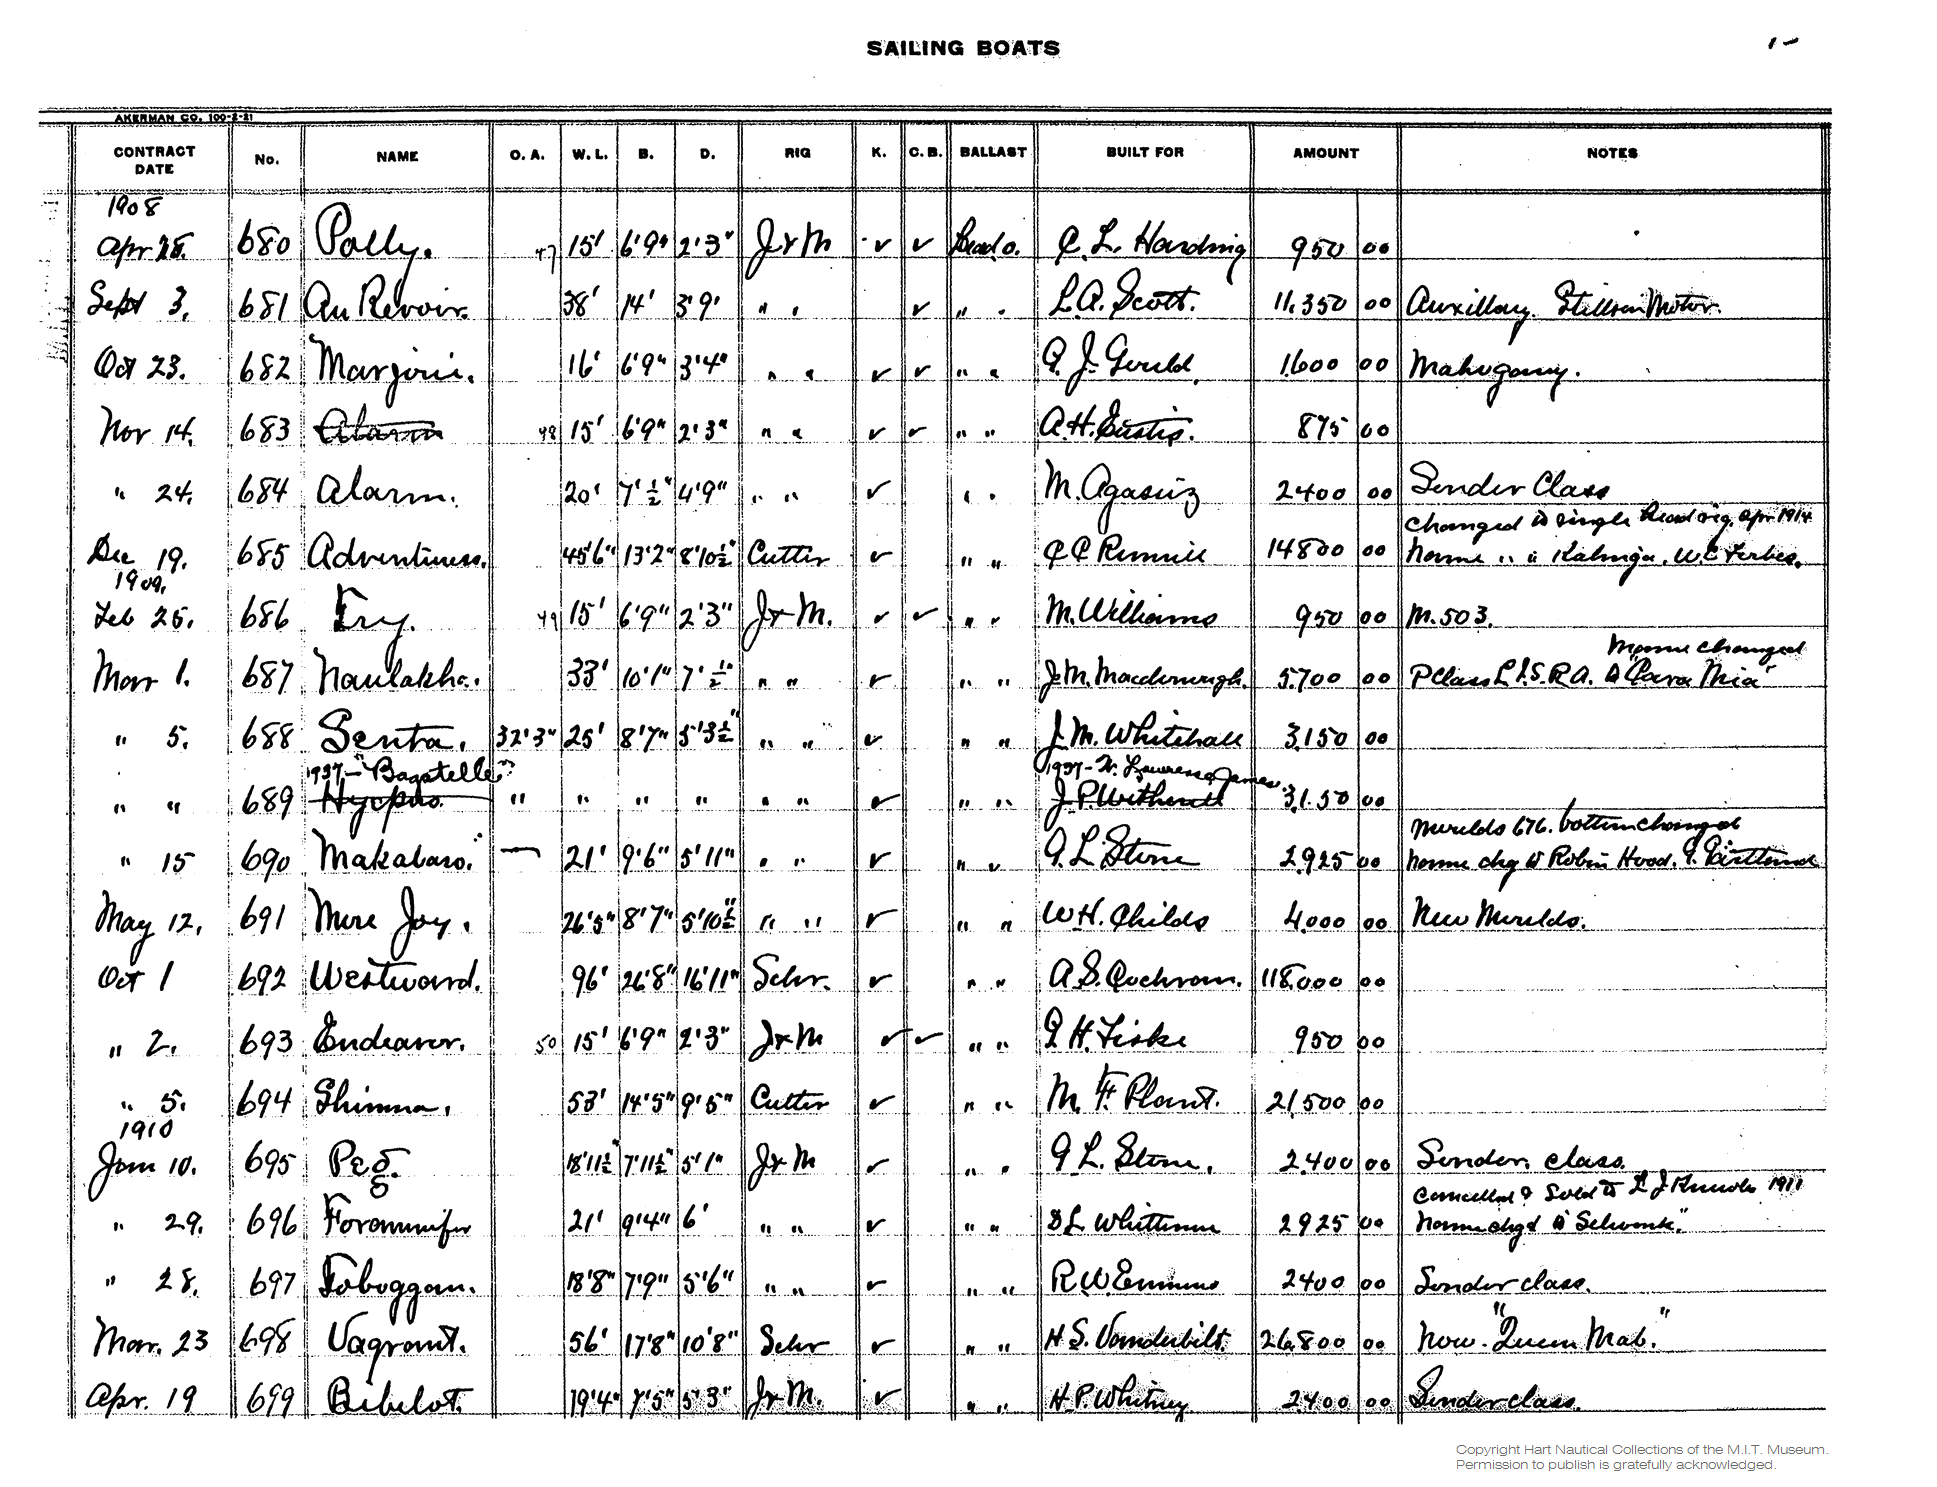 SAILING BOATS
1-
AKERMAN CO. 100-2-21
CONTRACT DATE No. NAME O. A. W. L. B. D. RIG K. C. B. BALLAST BUILT FOR AMOUNT NOTES
1908
Apr 25. 680 Polly. 47 15' 6'9" 2'3" J & M ✓ ✓ Lead o. C. L. Harding 950 00
Sept 3. 681 Au Revoir. 38' 14' 3'9' " " ✓ " " L. A. Scott. 11,350 00 Auxillary. Stillson Motor.
Oct 23. 682 Marjorie. 16' 6'9" 3'4" " " ✓ ✓ " " G. J. Gould. 1600 00 Mahogany.
Nov 14. 683 Alarm 48 15' 6'9" 2'3" " " ✓ ✓ " " A. H. Eustis. 875 00
" 24. 684 Alarm. 20' 7'½" 4'9" " " ✓ " " M. Agassiz 2400 00 Sonder Class
changed to single head rig. Apr 1914
Dec 19. 685 Adventuress. 45'6" 13'2" 8'10½" Cutter ✓ " " C C Rumrill 14800 00 Name " " Kalinga. W. C. Forbes.
1909.
Feb 25. 686 Fry. 49 15' 6'9" 2'3" J & M. ✓ ✓ " " M. Williams 950 00 M. 503.
Name changed
Mar 1. 687 Naulakha. 33' 10'1" 7'½" " " ✓ " " J. M. Macdonough. 5700 00 P Class L. I. S. R. A. to "Cara Mia"
" 5. 688 Senta. 32'3" 25' 8'7" 5'3½" " " ✓ " " J. M. Whitehall 3,150 00
1937- "Bagatelle" 1937- W. Lawrence James.
" " 689 " " " " " " ✓ " " J. P. 3,150 00
Nereids 676. bottom changed
" 15 690 Makabaro." — 21' 9'6" 5'11" " " ✓ " " G. L. Stone 2,925 00 Name chg to Robin Hood.
May 12. 691 Mere Joy. 26'5" 8'7" 5'10½" " " ✓ " " W. H. Childs 4,000 00 New Nereids.
Oct 1 692 Westward. 96' 26'8" 16'11" Schr. ✓ " " A. S. Cochran. 118,000 00
" 2. 693 Endeavor. 50 15' 6'9" 2'3" J & M ✓ ✓ " " H. Fiske 950 00
" 5. 694 Shimna. 53' 14'5" 9'5" Cutter ✓ " " M. F. Plant. 21,500 00
1910
Jan 10. 695 Peg. 18'11½" 7'11½" 5'1" J & M ✓ " " G L. Stone. 2,400 00 Sonder class.
Cancelled & Sold to 1911
" 29. 696 Foraminifer 21' 9'4" 6' " " ✓ " " D L Whittemore 2925 00 Name chgd to
" 28. 697 Toboggan. 18'8" 7'9" 5'6" " " ✓ " " R. W. Emmons 2400 00 Sonder class.
Mar. 23 698 Vagrant. 56' 17'8" 10'8" Schr ✓ " " H. S. Vanderbilt. 26,800 00 Now. "Queen Mab."
Apr. 19 699 Bibelot. 19'4" 7'5" 5'3" J & M. ✓ " " H. P. Whitney 2,400 00 Sonder class.
Copyright Hart Nautical Collections of the M.I.T. Museum.
Permission to publish is gratefully acknowledged.